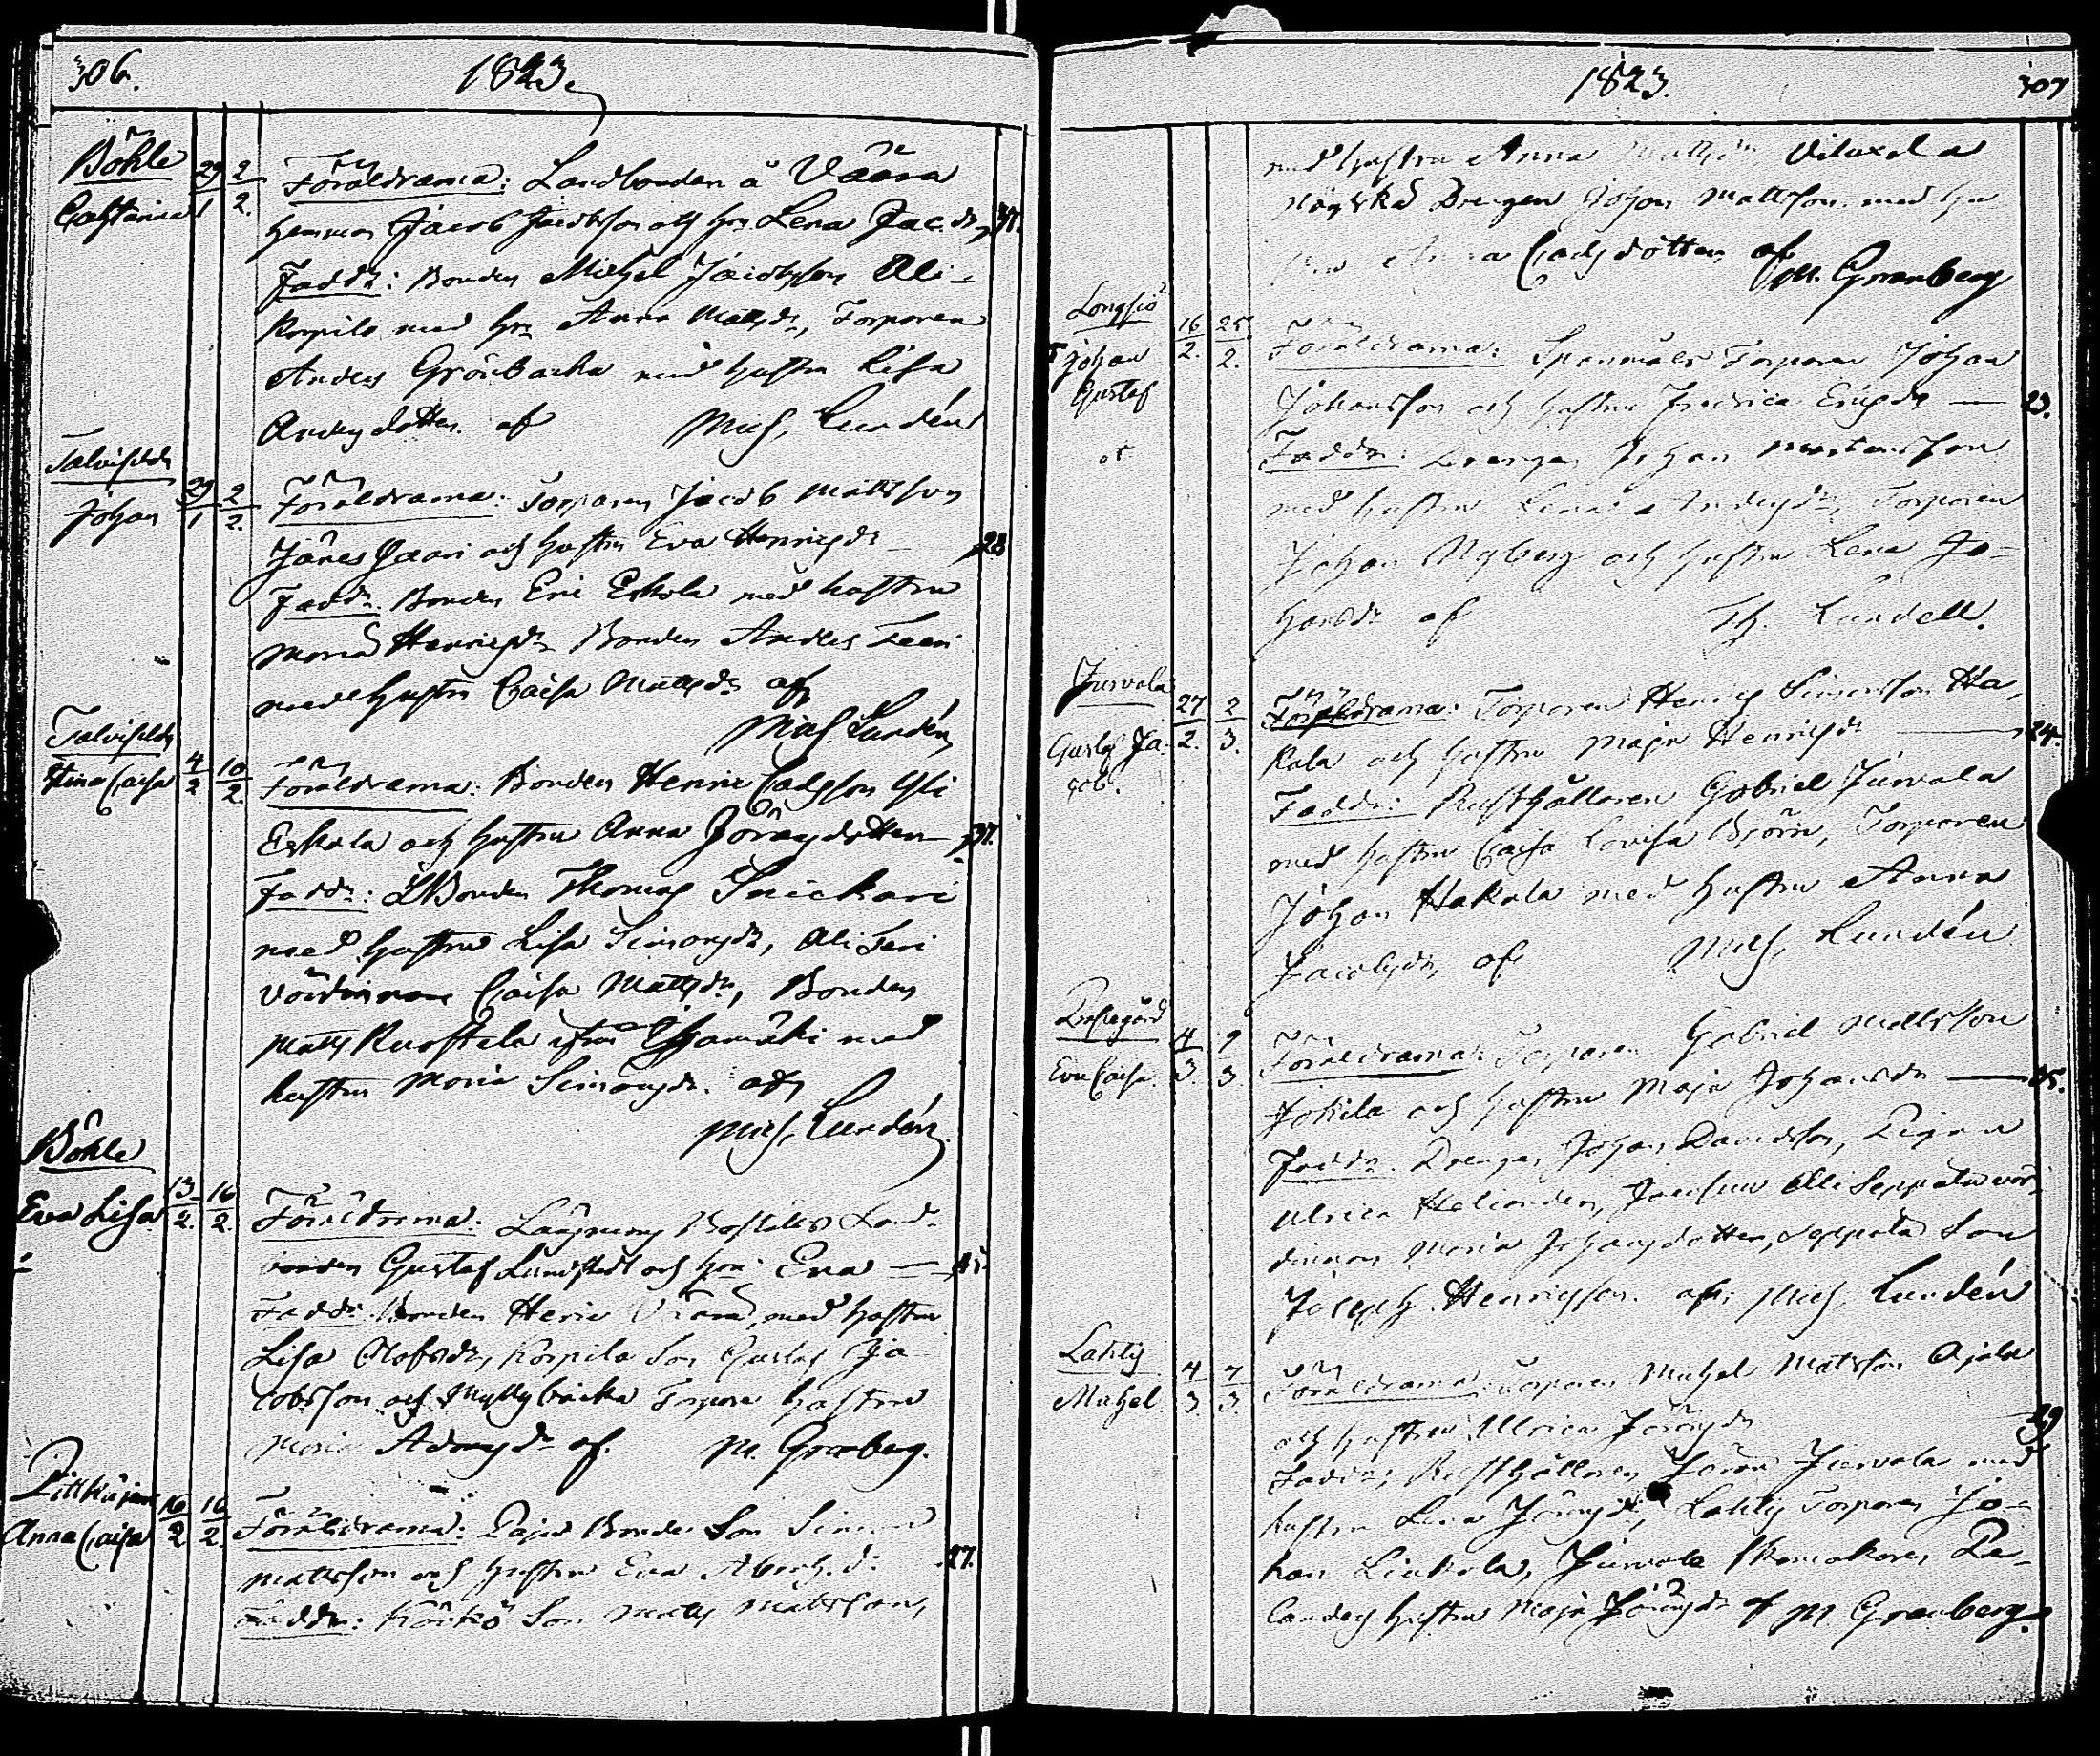 306.
1823.
Böhle
Cathrina
29/1 2/2.
Föräldrarna: Landbonden å Väära
hemman Jacob Jacobsson och hu Lena Jac.dr, 37.
Faddr: Bonden Michel Jacobsson Ali-
Korpila med hu Anna Mattsdr, Torparen
Anders Grönbacka med hustru Lisa
Andersdotter. af Mich. Lundén
Talvisilda
Johan
29/1 2/2.
Föräldrarna: Torparen Jacob Mattsson
och hustru Eva Henricsdr 28
Faddr. Bonden Eric Eskola med hustru
Maria Henricsdr Bonden Anders Teeri
med hustru Caisa Mattsdr af
Mich. Lundén
Talvisilda
Stina Caisa
4/2 10/2.
Föräldrarna: Bonden Henric Carlsson Yli
Eskola och hustru Anna Göransdotter 37.
Faddr: Bonden Thomas Snickari
med hustru Lisa Simonsdr, Ali Teri
värdinnan Caisa Mattsdr, Bonden
Matts Ruostela ifrån med
hustru Maria Simonsdr. af
Mich. Lundén
Böhle
Eva Lisa
13/2. 16/2.
Föräldrarna: Boställes Land-
bonden Gustaf Lundstedt och hu: Eva
Faddr. Bonden Henric med hustru
Lisa Olofsdr, Korpila Son Gustaf Ja-
cobsson och Myllybacka Torpare hustru
Maria Adamsdr af. M. Granberg.
Pittkäjärvi
Anna Caisa
16/2 16/2.
Föräldrarna: Bonde Son Simon
Mattsson och hustru Eva Abrah.d: 27.
Faddr: Körkö Son Matts Mattsson,
1823.
307
med hustru Anna Mattsdr
Drengen Johan Mattsson med hu
Carlsdotter af
M. Granberg
Långsjö
Johan
Gustaf
16/2. 25/2.
Föräldrarna: Spanmåls Torparen Johan
Johansson och hustru Fredrica Ericsdr 23.
Faddr: Drengen Johan Mårtensson
med hustru Lena Andersdr, Torparen
Johan Nyberg och hustru Lena Jo-
hansdr af Th. Lundell.
Jurvala
Gustaf Ja-
cob.
27/2. 2/3.
Föräldrarna: Torparen Henric Simonsson Ha-
kala och hustru Maja Henricsdr 24.
Faddr: Rusthållaren Gabriel Jurvala
med hustru Caisa Lovisa Björn, Torparen
Johan Hakala med hustru Anna
Jacobsdr, af Mich. Lundén
Eva Caisa.
4/3. 9/3.
Föräldrarna: Torparen Gabriel Mattsson
Jokila och hustru Maja Johansdr
Faddr. Drengen Johan Davidsson, Pigan
Ulrica Helianden, Alli Seppälä vär-
dinnan Maria Johansdotter, Seppälä Son
Joseph Henricsson. af Mich. Lundén
Lahty
Michel.
4/3. 7/3.
Föräldrarna: Torparen Michel Mattsson Ojala
och hustru Ulrica Göransdr 29
Faddr; Rusthållaren Göran Jurvala med
hustru Lena Göransdr, Lahty Torparen Jo-
han Linkola, Jurvala Skomakaren
hustru Maja Göransdr af M. Granberg.